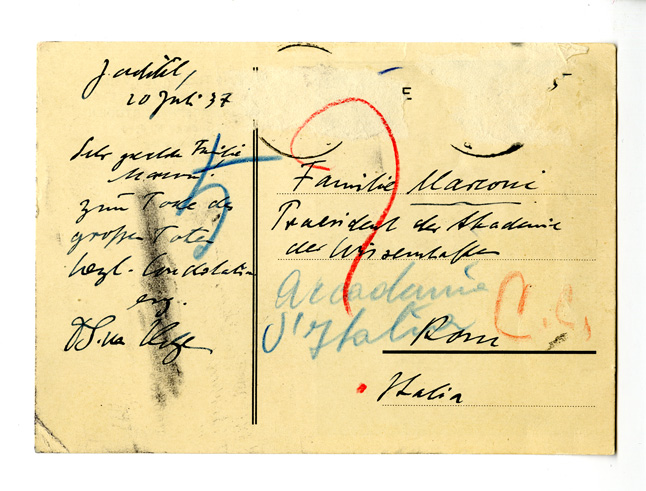 20 Juli 37
Sehr geehrte Familie
Marconi.
zum Tode des
großen Toten
herzl. Condolation
5
E
5
Familie Marconi
Praesident der Akademie
der Wissenschaften
Accademia
d'Italia
C.C.
Rom
Italia